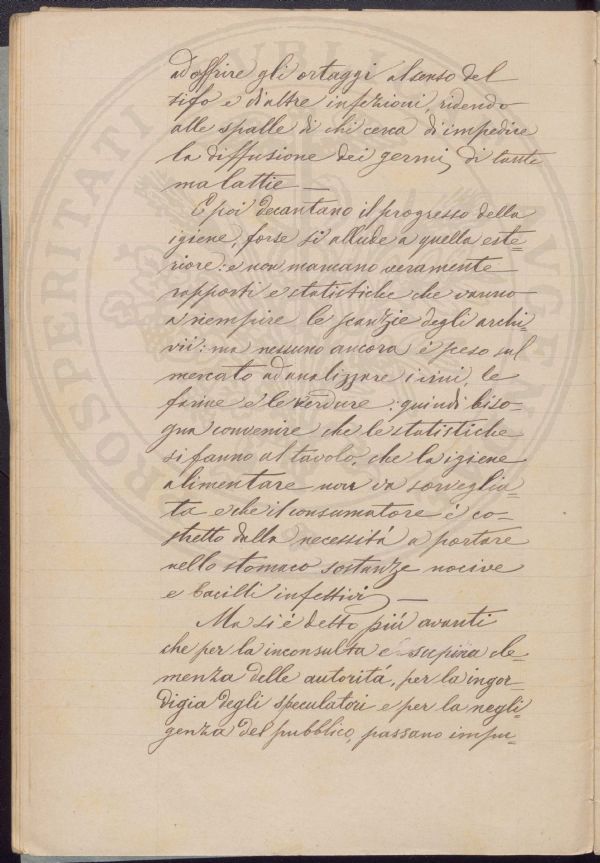 ad offrire gli ortaggi al senso del
tifo e di altre infezioni, ridendo
alle spalle di chi cerca di impedire
la diffusione dei germi, di tante
malattie —
E poi decantano il progresso della
igiene, forse si allude a quella este=
riore: e non mancano veramente
rapporti e statistiche che vanno
a riempire le scanzie degli archi=
vii: ma nessuno ancora è sceso sul
mercato ad analizzare i vini, le
farine e le verdure: quindi biso-
gna convenire che le statistiche
si fanno al tavolo, che la igiene
alimentare non va sorveglia=
ta e che il consumatore é co-
stretto dalla necessitá a portare
nello stomaco sostanze nocive
e bacilli infettivi —
Ma si é detto piú avanti
che per la inconsulta e supina cle-
menza delle autoritá, per la ingor-
digia degli speculatori e per la negli=
genza del pubblico, passano impu=
PROSPERITATI PUBLICAE AUGENDAE